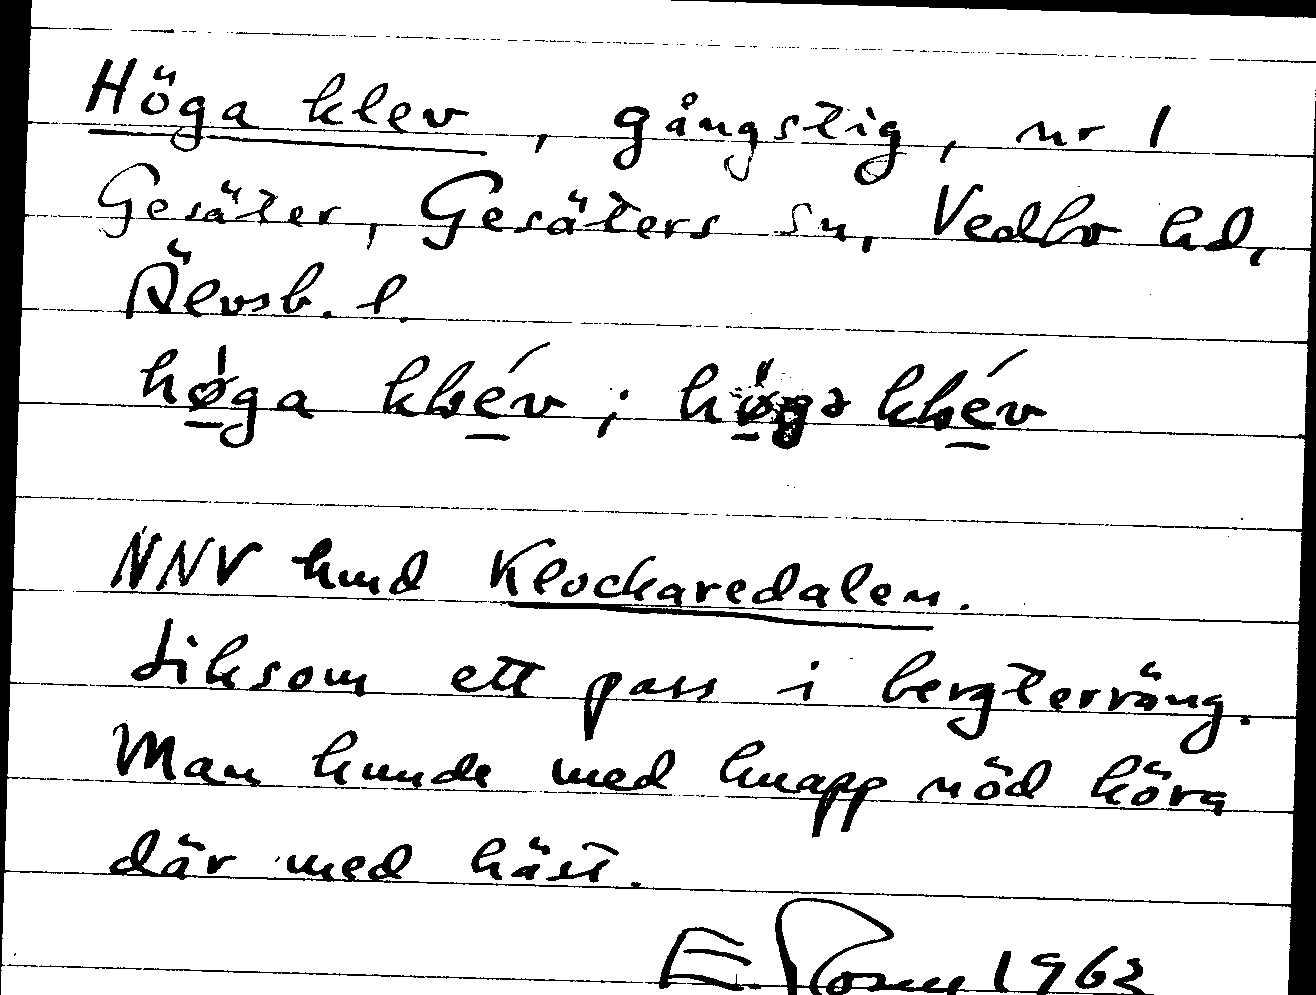 Höga klev, gångstig, nr 1
Gesäter, Gesäters sn, Vedbo hd,
Älvsb. l.
NNV hmd Klockaredalen.
Liksom ett pass i bergterräng.
Man kunde med knapp nöd köra
där med häst.
E. 1963